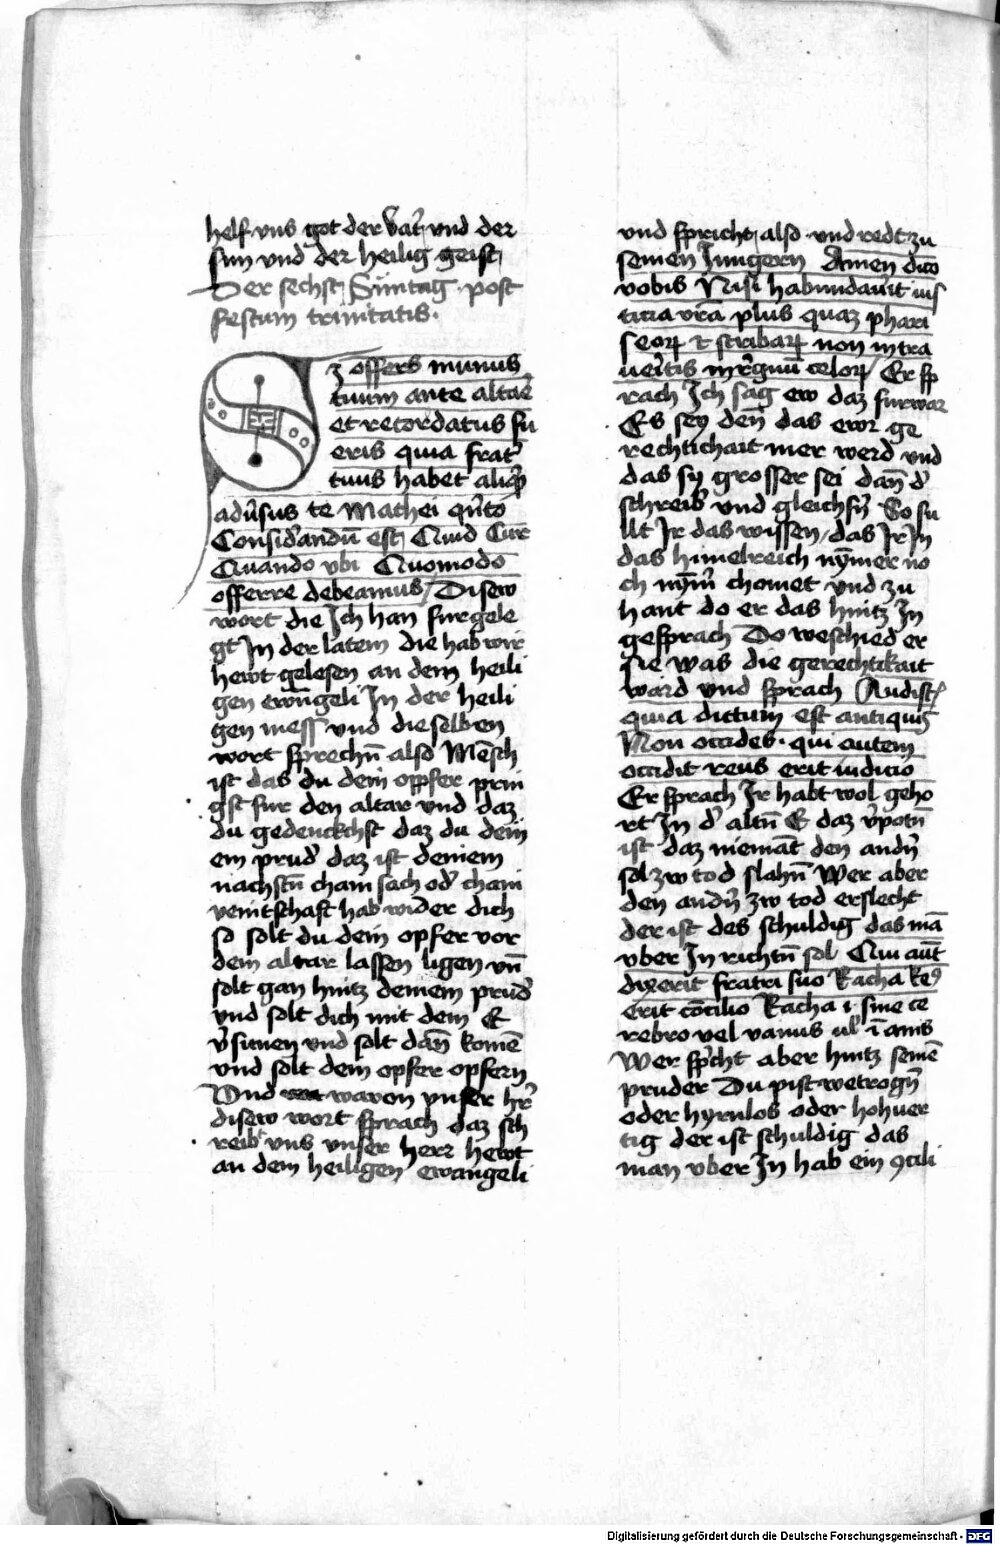 helf vns got der vat̃ vnd der
sun vnd der heilig geist
Der sechst Suntag post
festum trinitatis.
Sz offers munus
tuum ante altaē
et recordatus fu
eris quia frat̃
tuus habet aliq̃
adũsus te Mathei qũto
Considãndū est Quid Cur
Quando vbi Quomodo
offerre debeamus / Disew
wort die Ich han fur gele
gt In der latein die hab wir
hewt gelesen an dem heili
gen ewñgeli In der heili
gen mess vnd die selben
wort sprechñ also Mēsch
ist das du dein opfer prin
gst fur den altar vnd daz
du gedenckchst daz du dein
ein prud̃ daz ist deniem
nachstñ chain sach od̃ chain
veintschaft hab wider dich
so solt du dein opfer vor
dem altar lassen ligen vñ
solt gan hintz deinem prud̃
vnd solt dich mit dem E
ṽsunen vnd solt dañ komē
vnd solt dein opfer opfern
Vnd waren vnser hr̃
disew wort sprach daz sch
reibt vns vnser herr hewt
an dem heiligen ewangeli
vnd spricht also vnd redt zu
seinen Iungern Amen dico
vobis Nisi habundauit ius
titia vr̃a plus quaz phari
seoꝝ et scribaꝝ non intra
ueritis in r̃gnū celoꝝ / Er sp
rach Ich sag ew daz furwar
Es sey deñ das ewr ge
rechtichait mer werd vnd
das sy grosser sei dañ d̃
schreib̃ vnd gleichsñ So su
llt Ir das wissen / das Ir In
das himelreich nỹmer no
ch nỹm̃ chomet vnd zu
hant do er das hintz In
gesprach Do weschied er
sie was die gerechtikait
ward vnd sprach Audist
quia dictum est antiquis
Non occides. qui autem
occidit reus erit iudicio
Er sprach Ir habt wol geho
rt In d̃ altñ E daz ṽpotñ
ist daz niemāt den andñ
sol zw tod slahñ Wer aber
den andñ zw tod erslecht
der ist des schuldig das mā
vber In richtñ sol Qui aūt
dixerit fratri suo Racha re9
erit cōcilio Racha i. sine ce
rebro vel vanus ul̃ īanis
Wer sp̃cht aber hintz seinē
pruder Du pist wetrogñ
oder hyrnlos oder hohuer
tig der ist schuldig das
man vber In hab ein 9cili
Digitalisierung gefördert durch die Deutsche Forschungsgemeinschaft - DFG